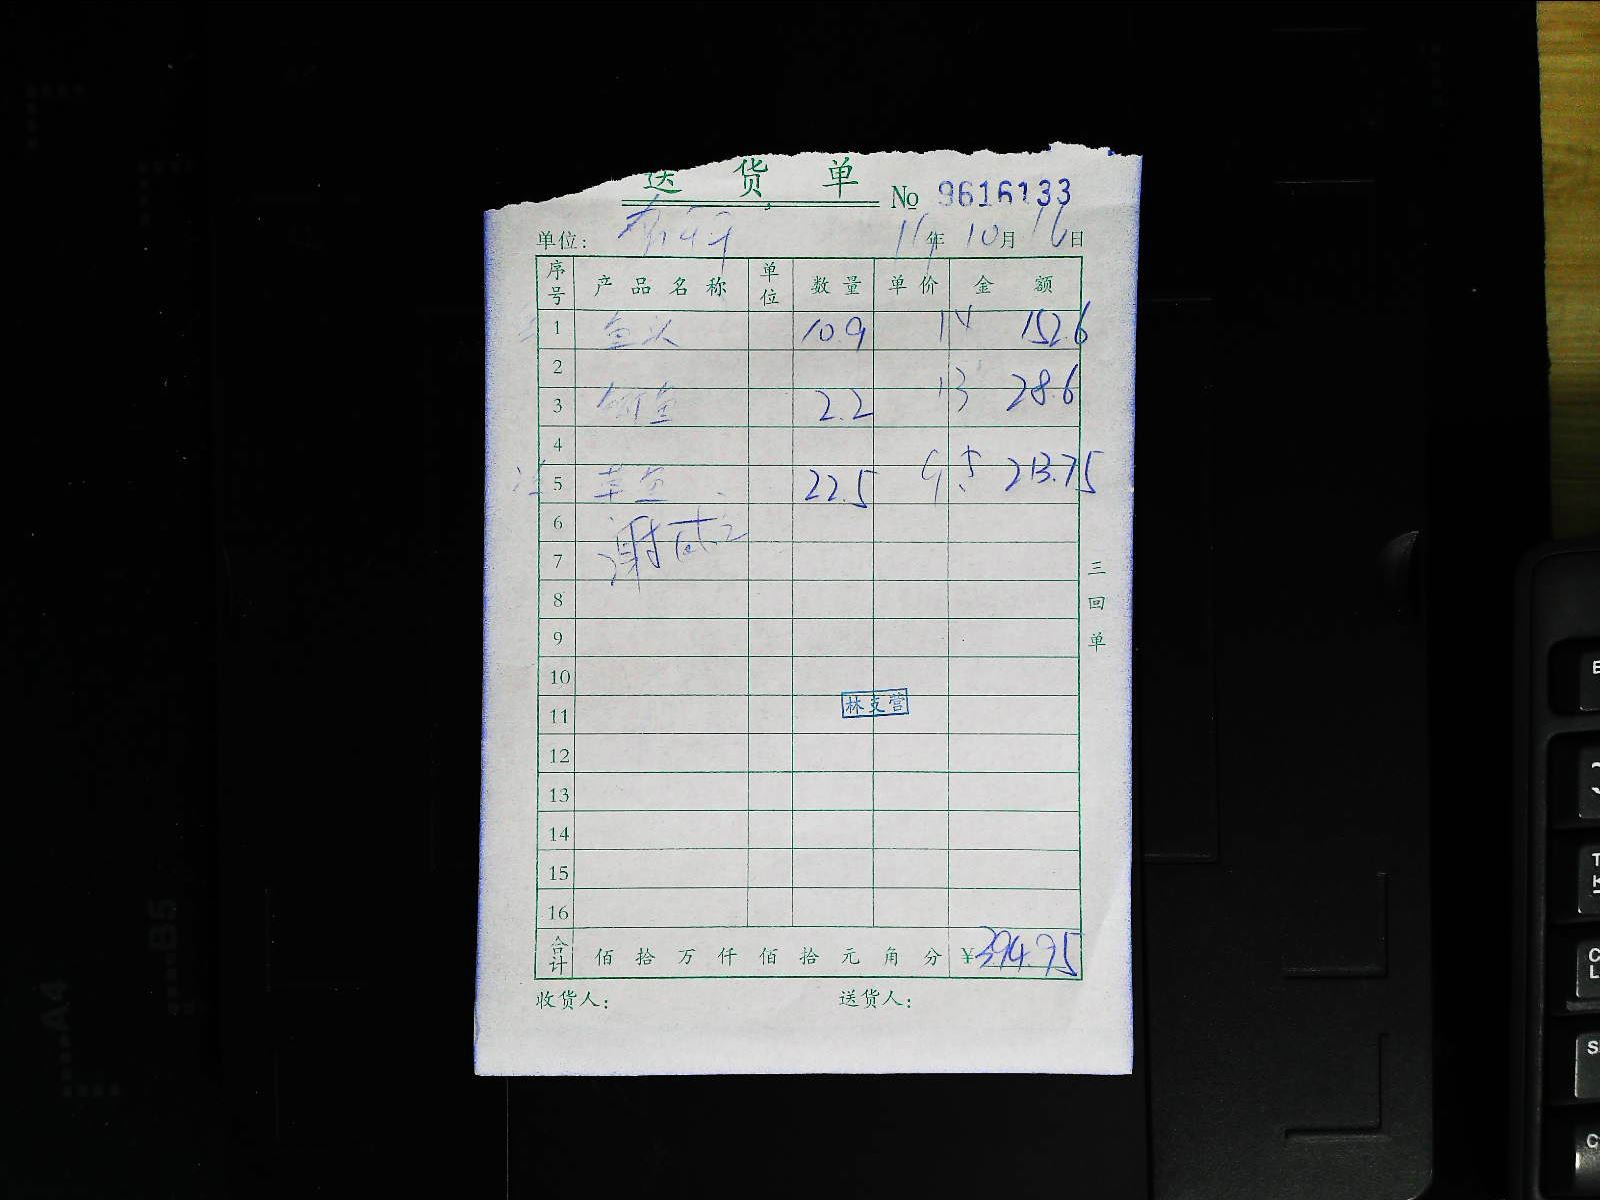 送 货 单 № 9616133
单位: 11年 10月 16日
序号 产品名称 单位 数量 单价 金额
1 鱼头 10.9 14 152.6
2
3 鲫鱼 2.2 13 28.6
4
5 草鱼 22.5 9.5 213.75
6
7
8
9
10
11 林支营
12
13
14
15
16
合计 佰 拾 万 仟 佰 拾 元 角 分 ¥394.95
收货人: 送货人:
三回单
B5
A4